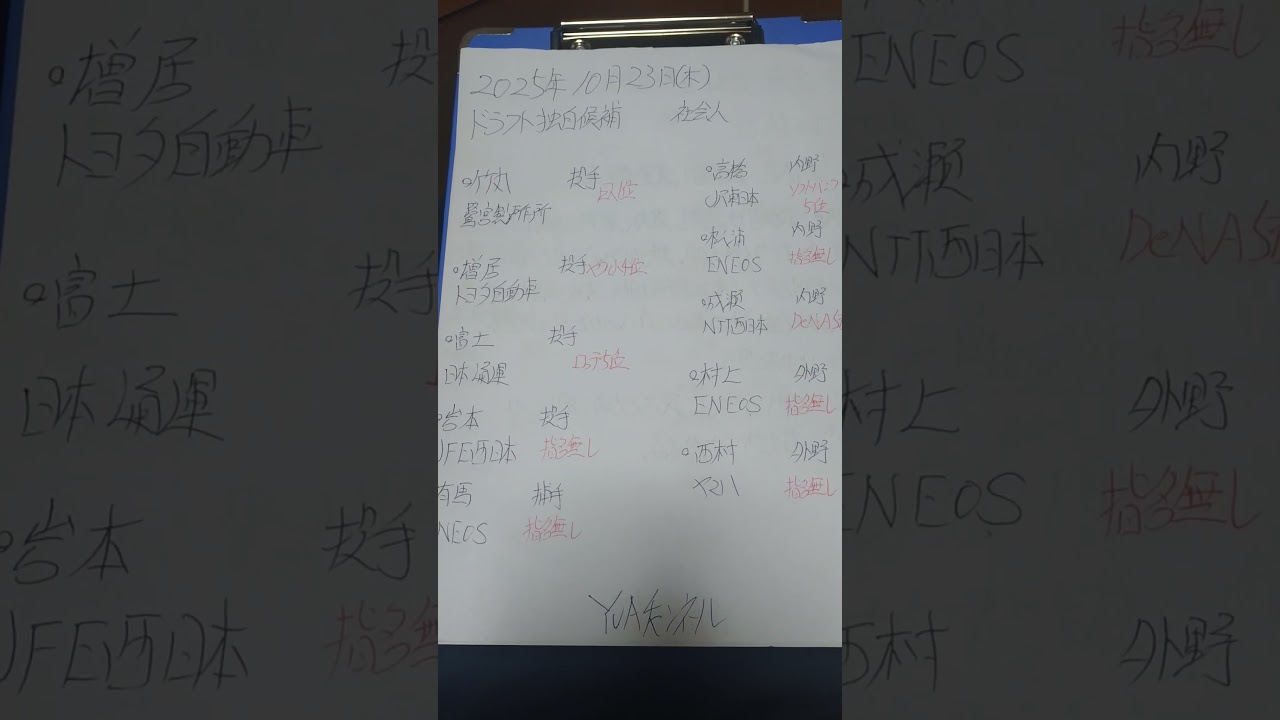 2025年10月23日(木)
ドラフト独自候補 社会人
○竹丸 投手
鷺宮製作所 巨人1位
○増居 投手 ヤクルト4位
トヨタ自動車
○富士 投手
日本通運 ロッテ5位
岩本 投手
JFE西日本 指名無し
有馬 捕手
ENEOS 指名無し
○高橋 内野
JR東日本 ソフトバンク5位
○松浦 内野
ENEOS 指名無し
○成瀬 内野
NTT西日本 DeNA5
○村上 外野
ENEOS 指名無し
○西村 外野
ヤマハ 指名無し
YUAチャンネル